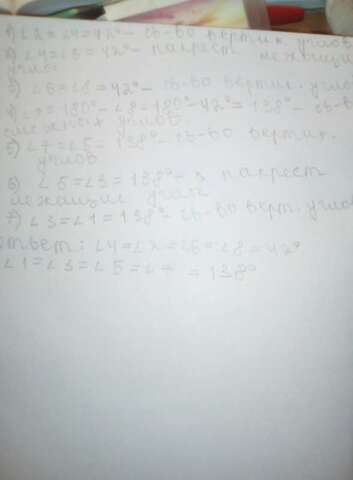 1) ∠2 = ∠4 = 42° - св-во вертик. углов
2) ∠4 = ∠6 = 42° - накрест лежащие
углы
3) ∠6 = ∠8 = 42° - св-во вертик. углов
4) ∠7 = 180° - ∠8 = 180° - 42° = 138° - св-во
смежных углов
5) ∠7 = ∠5 = 138° - св-во вертик.
углов
6) ∠5 = ∠3 = 138° - накрест
лежащие углы
7) ∠3 = ∠1 = 138° - св-во верт. углов
ответ: ∠4 = ∠2 = ∠6 = ∠8 = 42°
∠1 = ∠3 = ∠5 = ∠7 = 138°